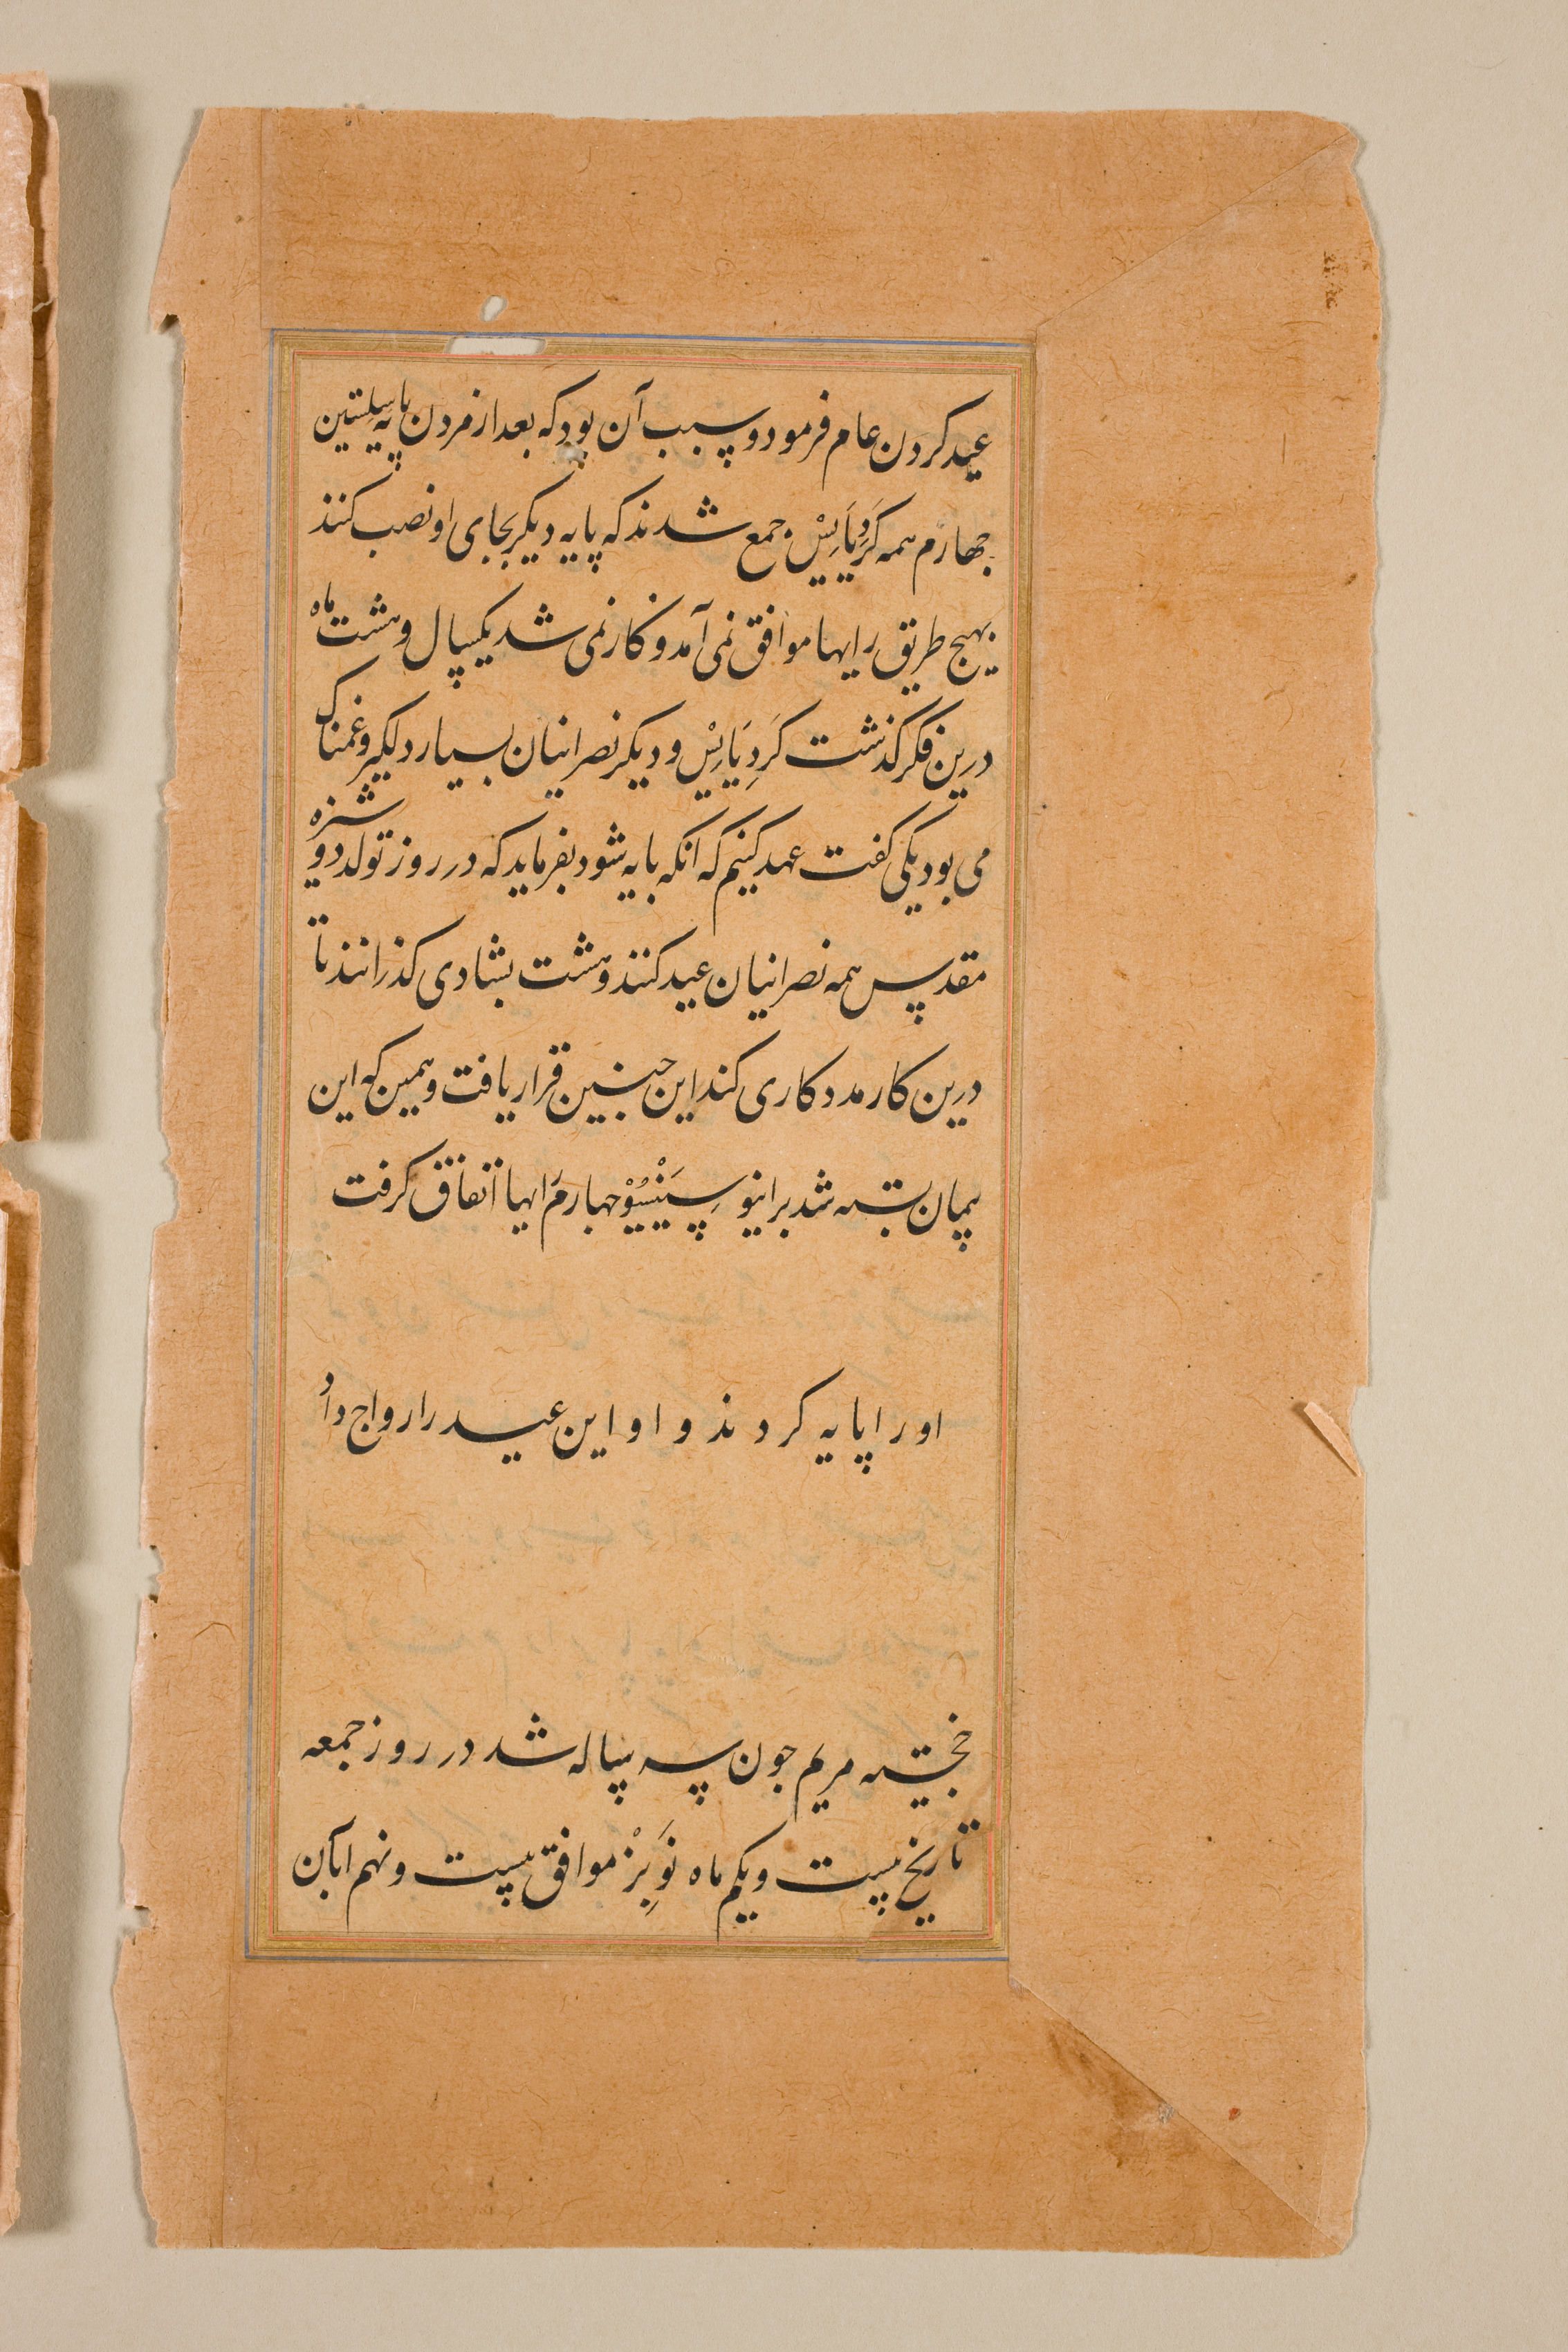 عید کردن عام فرمود و سبب آن بود که بعد از مردن پاپه سِلِستین
چهارم همه کَرَدِیَارِیسْ جمع شدند که پاپه دیکر بجای او نصب کنند
بهیچ طریق رایها موافق نمی آمد و کار نمی شد یکسال و هشت ماه
درین فکر گذشت کَرَدِیَارِیسْ و دیکر نصرانیان بسیار دلکیر و غمناک
می بود یکی کفت عهد کنیم که آنکه پاپه شود بفرماید که در روز تولد دوشزه
مقدس همه نصرانیان عید کنند و هشت بشادی کذرانند تا
درین کار مددکاری کند این چنین قرار یافت و همین که این
پیمان بسته شد بر اینوسِیَنْسِیُوْ چهارم رایها اتفاق کرفت
او را پاپه کردند و او این عید را رواج داد
خجسته مریم چون سه ساله شد در روز جمعه
تاریخ بیست و یکم ماه نَوِبَرْ موافق بیست و نهم ابان